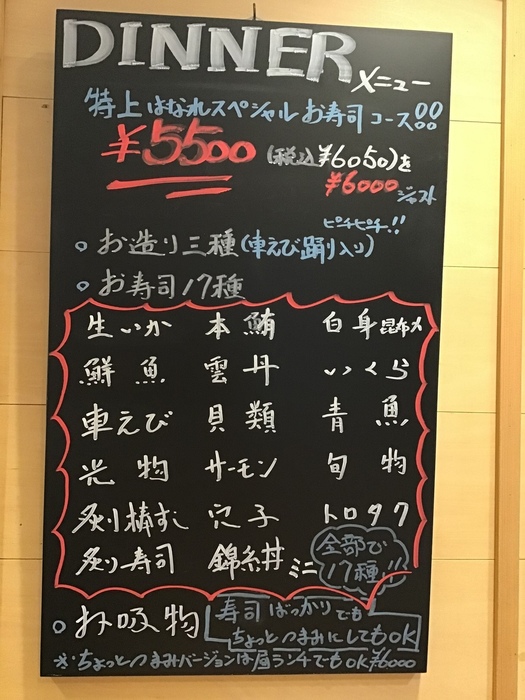 DINNER メニュー
特上はなれスペシャルお寿司コース!!
¥5500 (税込¥6050)を
¥6000 ジャスト
ピチピチ!!
○お造り三種(車えび踊り入り)
○お寿司17種
生いか 本鮪 白身昆布〆
鮮魚 雲丹 いくら
車えび 貝類 青魚
光物 サーモン 旬物
炙り棒すし 穴子 トロタク
炙り寿司 錦糸丼ミニ
全部で
17種!!
○お吸物
寿司ばっかりでも
ちょっとつまみにしてもOK
※ちょっとつまみバージョンは昼ランチでもOK ¥6000